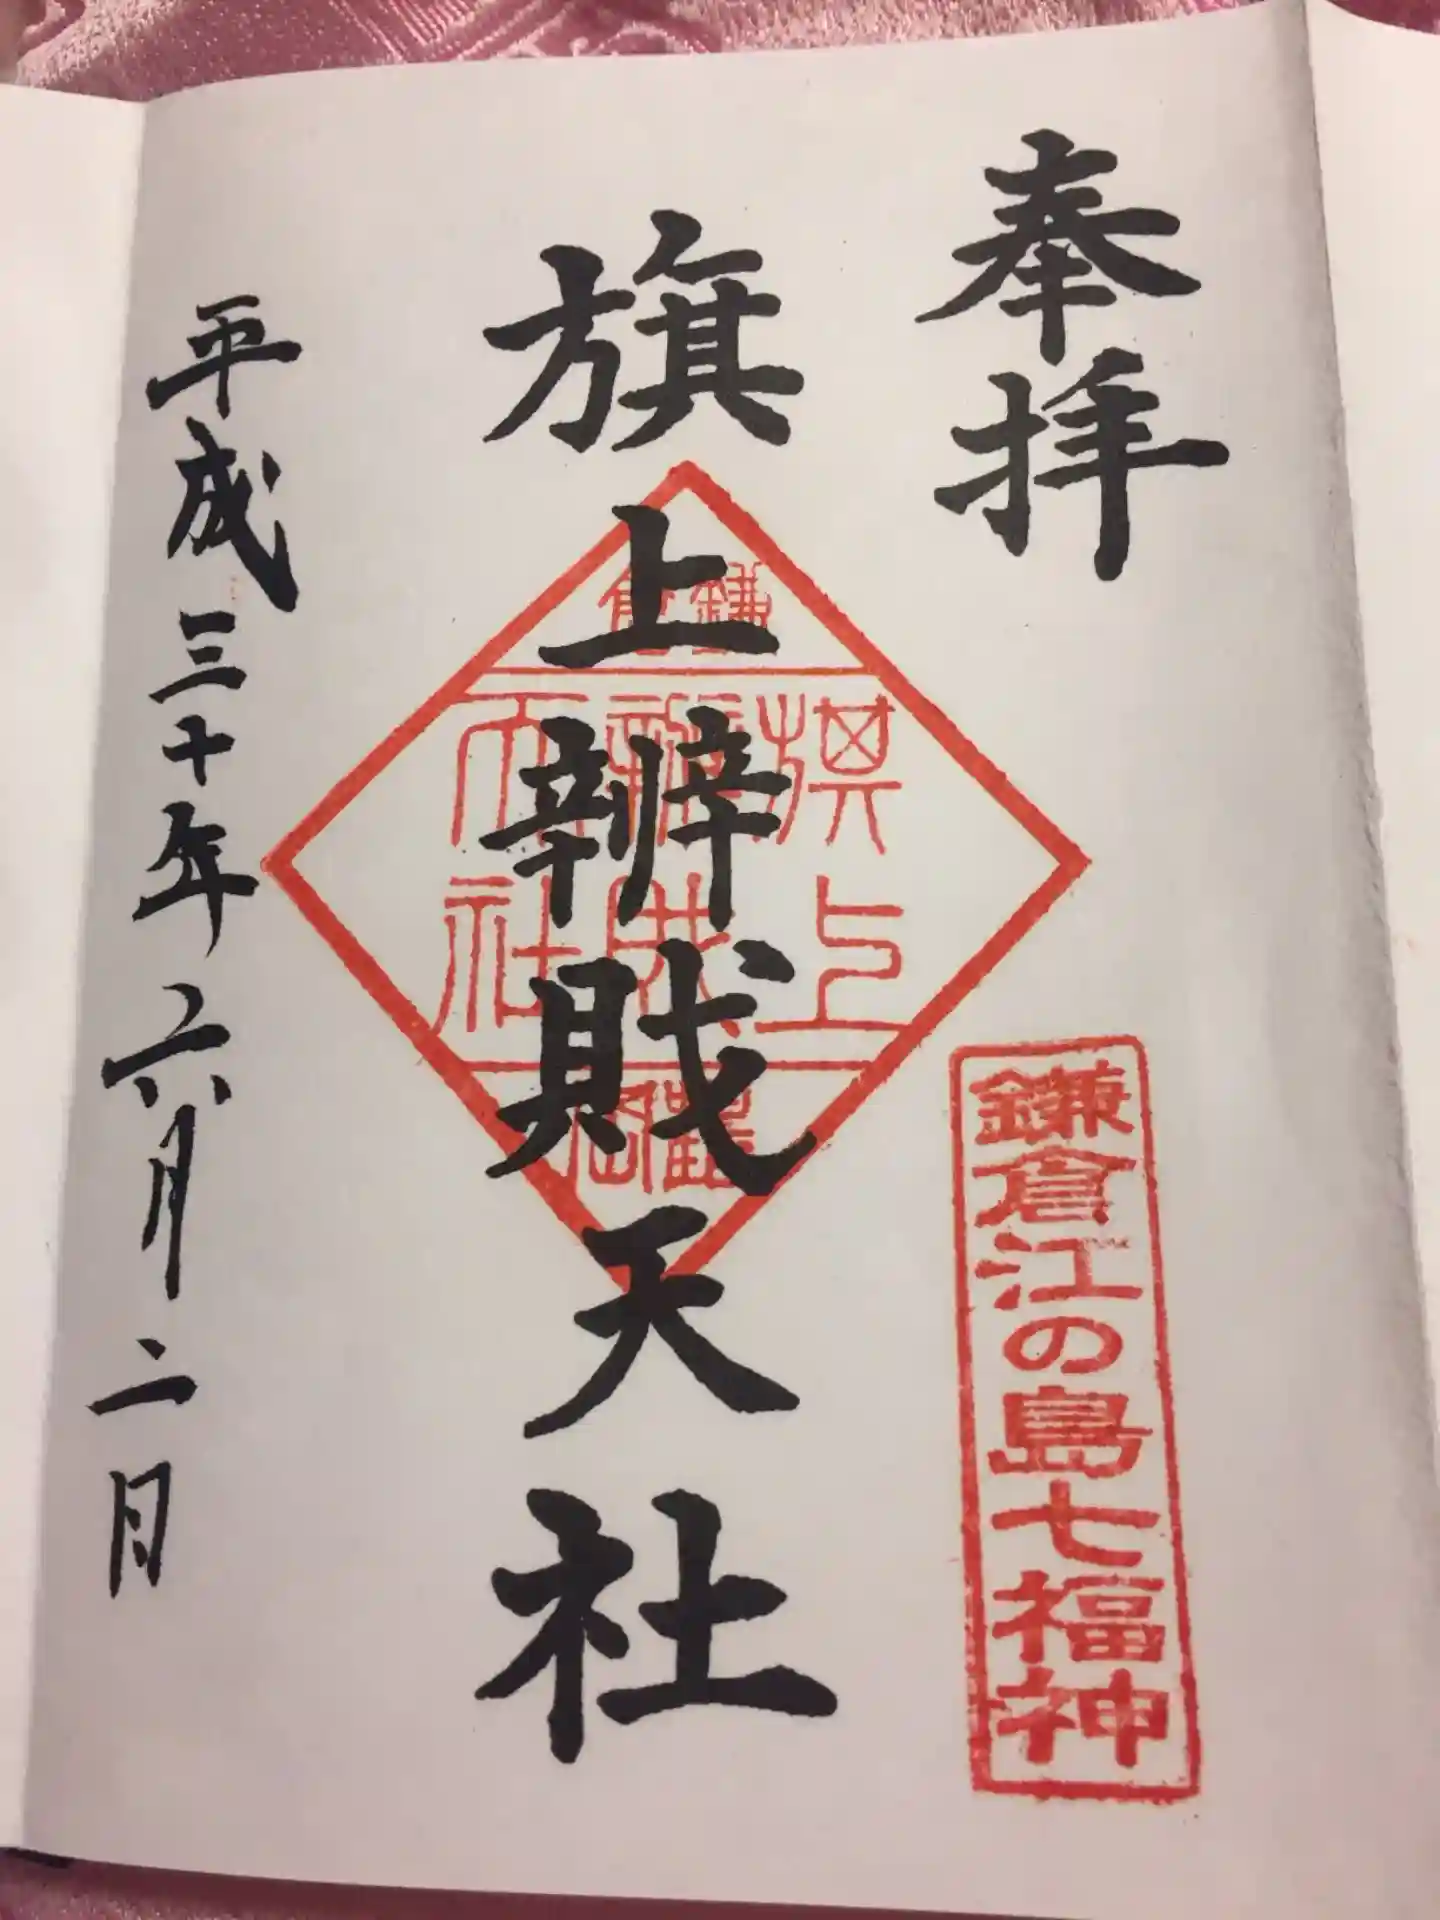 奉拝
鎌倉江の島七福神
旗上辨財天社
鎌倉
旗上
辨財
天社
平成三十年六月二日